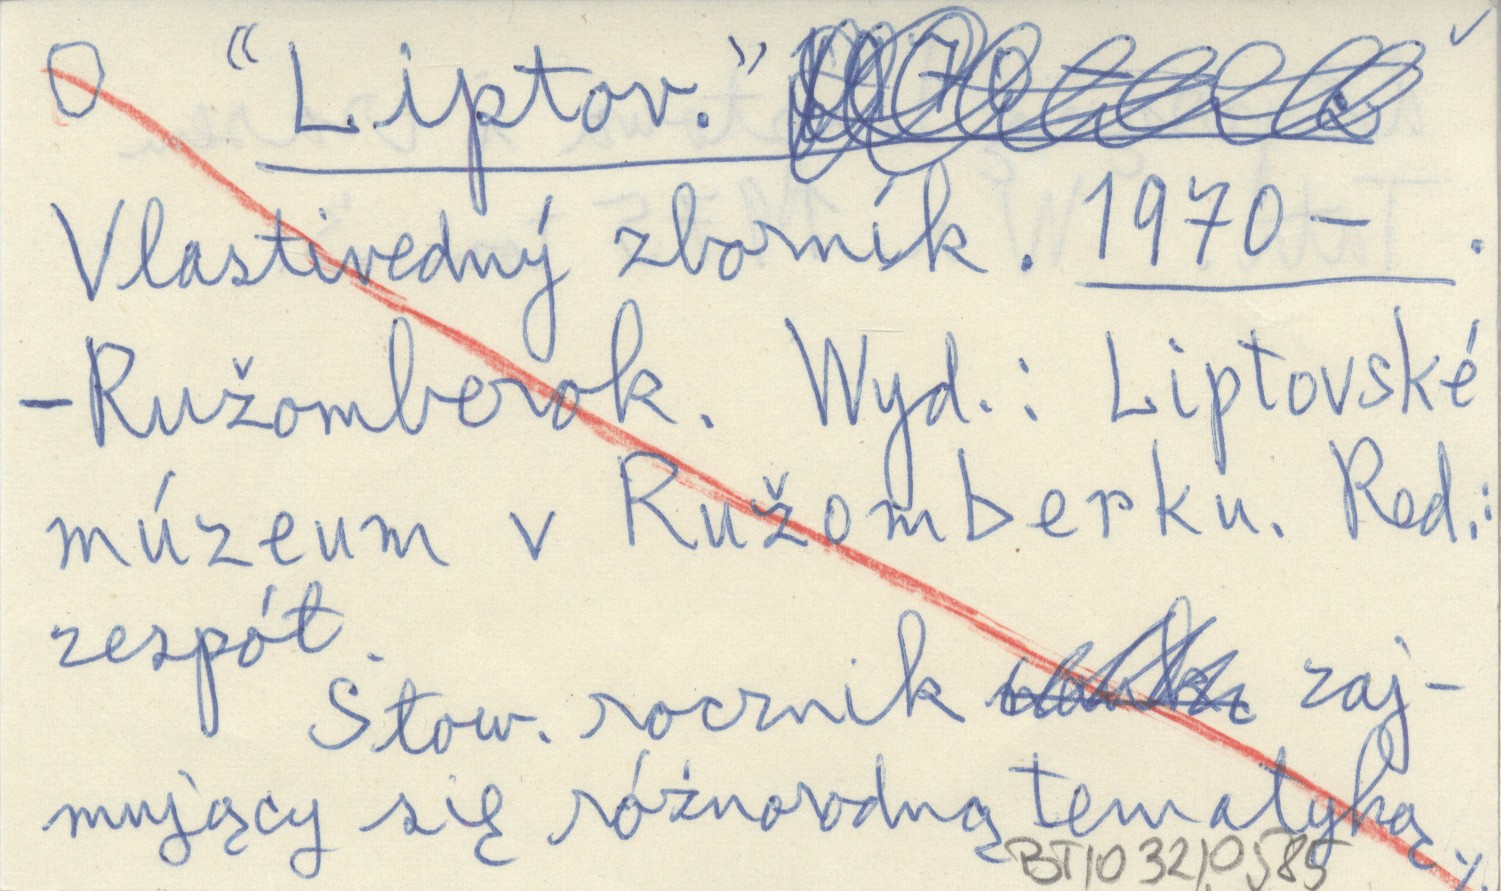 O "Liptov."
Vlastivedný zborník. 1970– .
– Ružomberok. Wyd.: Liptovské
múzeum v Ružomberku. Red.:
zespół.
Słow. rocznik zaj-
mujący się różnorodną tematyką
BT10 32/0585